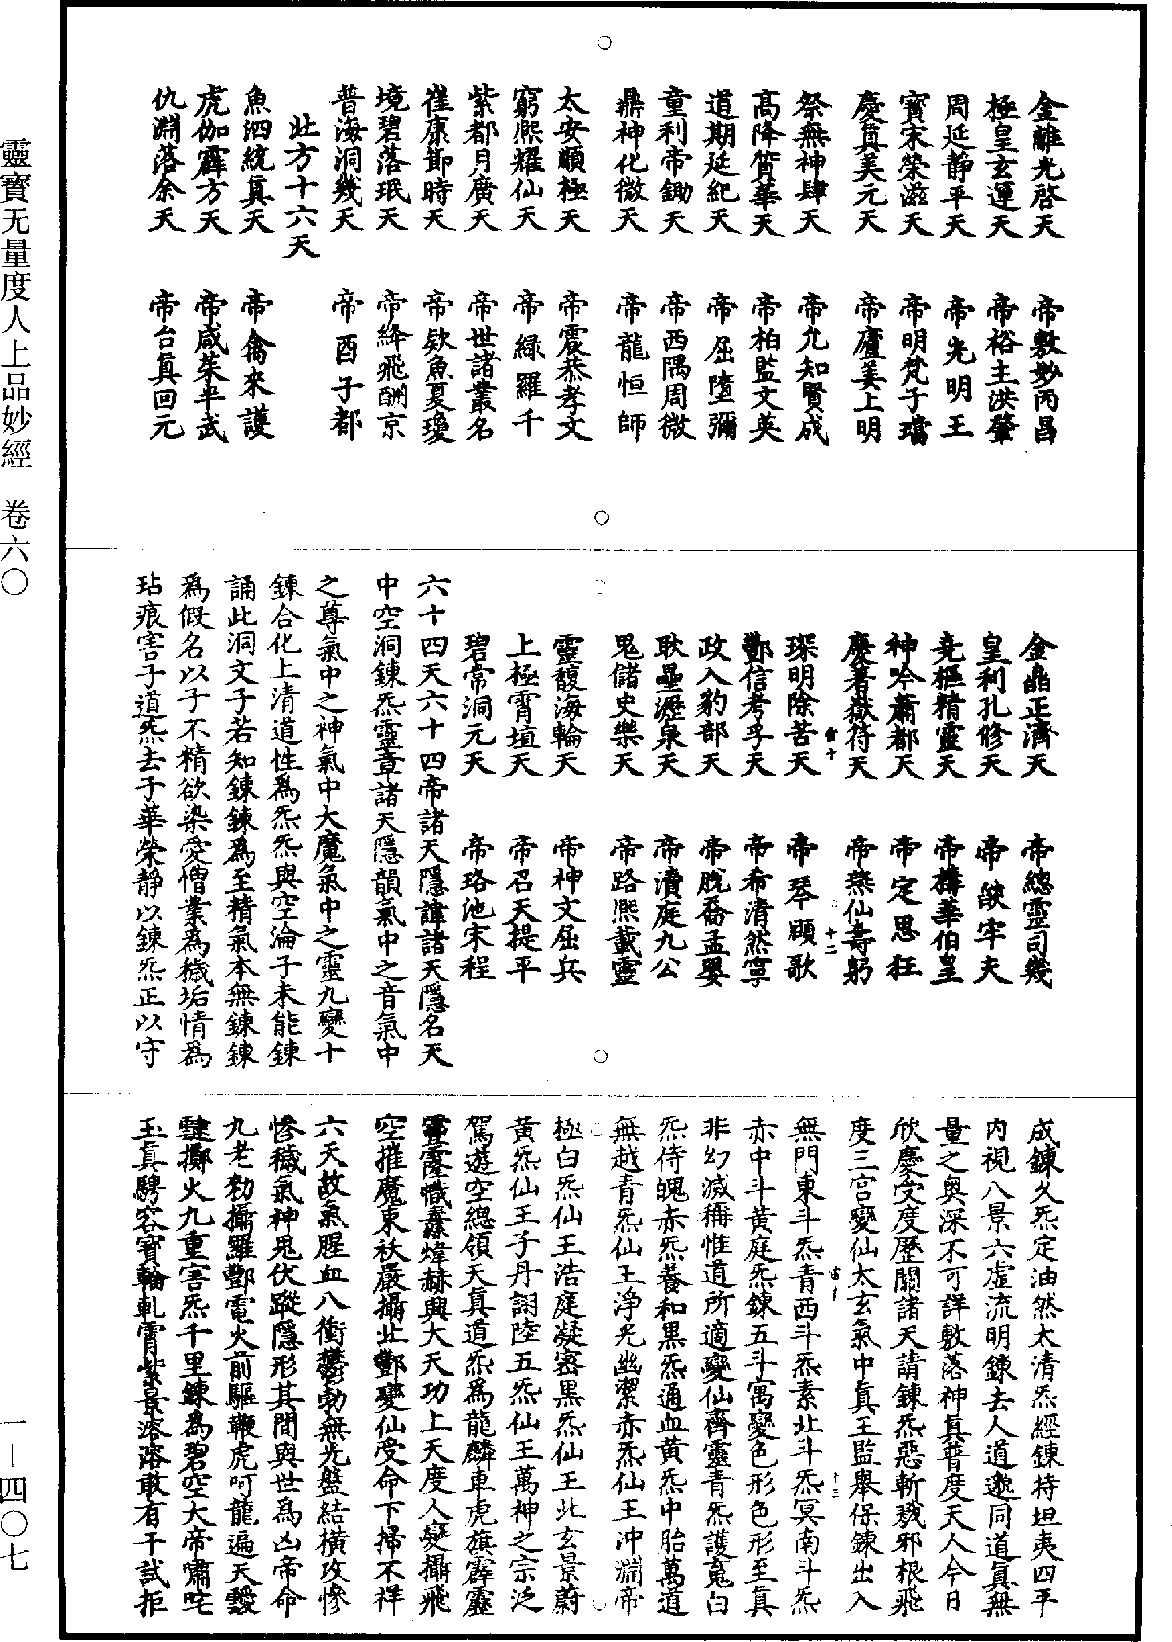 靈寶无量度人上品妙經 卷六〇
一—四〇七
金離光啓天 帝敷妙丙昌
極皇玄運天 帝裕主洪肇
周延静平天 帝光明王
寶宋榮滋天 帝明梵子璫
慶真美元天 帝廬姜上明
祭無神肆天 帝允知賢成
髙降筲華天 帝柏監文英
道期延紀天 帝屈墮彌
童利帝鋤天 帝西隅周微
鼎神化微天 帝龍恒師
太安順極天 帝震恭孝文
窮熙耀仙天 帝緑羅千
紫都月廣天 帝世諸叢名
崔康節時天 帝欸魚夏瓊
境碧落珉天 帝絳飛酬京
普海洞幾天 帝酉子都
北方十六天
魚泗統真天 帝禽來護
虎伽霹方天 帝咸茱平武
仇淵落余天 帝台真回元
金晶正濟天 帝總靈司幾
皇利孔修天 帝歃牢夫
竞樞精靈天 帝構華伯皇
神吟蕭都天 帝定思枉
慶署嶽符天 帝燕仙壽躬
琛明除苦天 帝琴頤歌
酆信考孚天 帝希清然寧
政入豹部天 帝脱喬孟嬰
耿壘瀝泉天 帝瀆庭九公
鬼儲史樂天 帝路熙載靈
靈馥海輪天 帝神文屈兵
上極霄垣天 帝召天提平
碧常洞元天 帝珞池宋程
六十四天六十四帝諸天隱諱諸天隱名天
中空洞鍊炁靈章諸天隱韻氣中之音氣中
之尊氣中之神氣中大魔氣中之靈九變十
鍊合化上清道性為炁炁與空淪子未能鍊
誦此洞文子若知鍊鍊為至精氣本無鍊鍊
為假名以子不精欲染愛憎業為穢垢情為
玷痕害子道炁去子華榮静以鍊炁正以守
成鍊久炁定油然太清炁經鍊持坦夷四平
内視八景六虚流明鍊去人道邈同道真無
量之奥深不可詳敷落神真普度天人今日
欣慶受度歷關諸天請鍊炁惡斬殘邪根飛
度三宫變仙太玄氣中真王監舉保鍊出入
無門東斗炁青西斗炁素北斗炁冥南斗炁
赤中斗黄庭炁鍊五斗寓變色形色形至真
非幻滅稱惟道所適變仙齊靈青炁護䰟白
炁侍魄赤炁養和黒炁通血黄炁中胎萬道
無越青炁仙王浄光幽潔赤炁仙王沖淵帝
極白炁仙王浩庭凝密黒炁仙王北玄景蔚
黄炁仙王子丹詡陸五炁仙王萬神之宗泛
駕遊空總領天真道炁為龍麟車虎旗霹靂
霞幟燾煒赫興大天功上天度人變攝飛
空摧魔束祅嚴攝北酆變仙受命下掃不祥
六天故氣腥血八衝欝勃無光盤結横攻慘
慘穢氣神鬼伏蹤隱形其間與世為凶帝命
九老勑攝羅酆電火前驅鞭虎呵龍遍天
肆擲火九重害炁千里鍊為碧空大帝嘯咤
玉真騁容寶輪軋霄紫景溶溶敢有干試拒